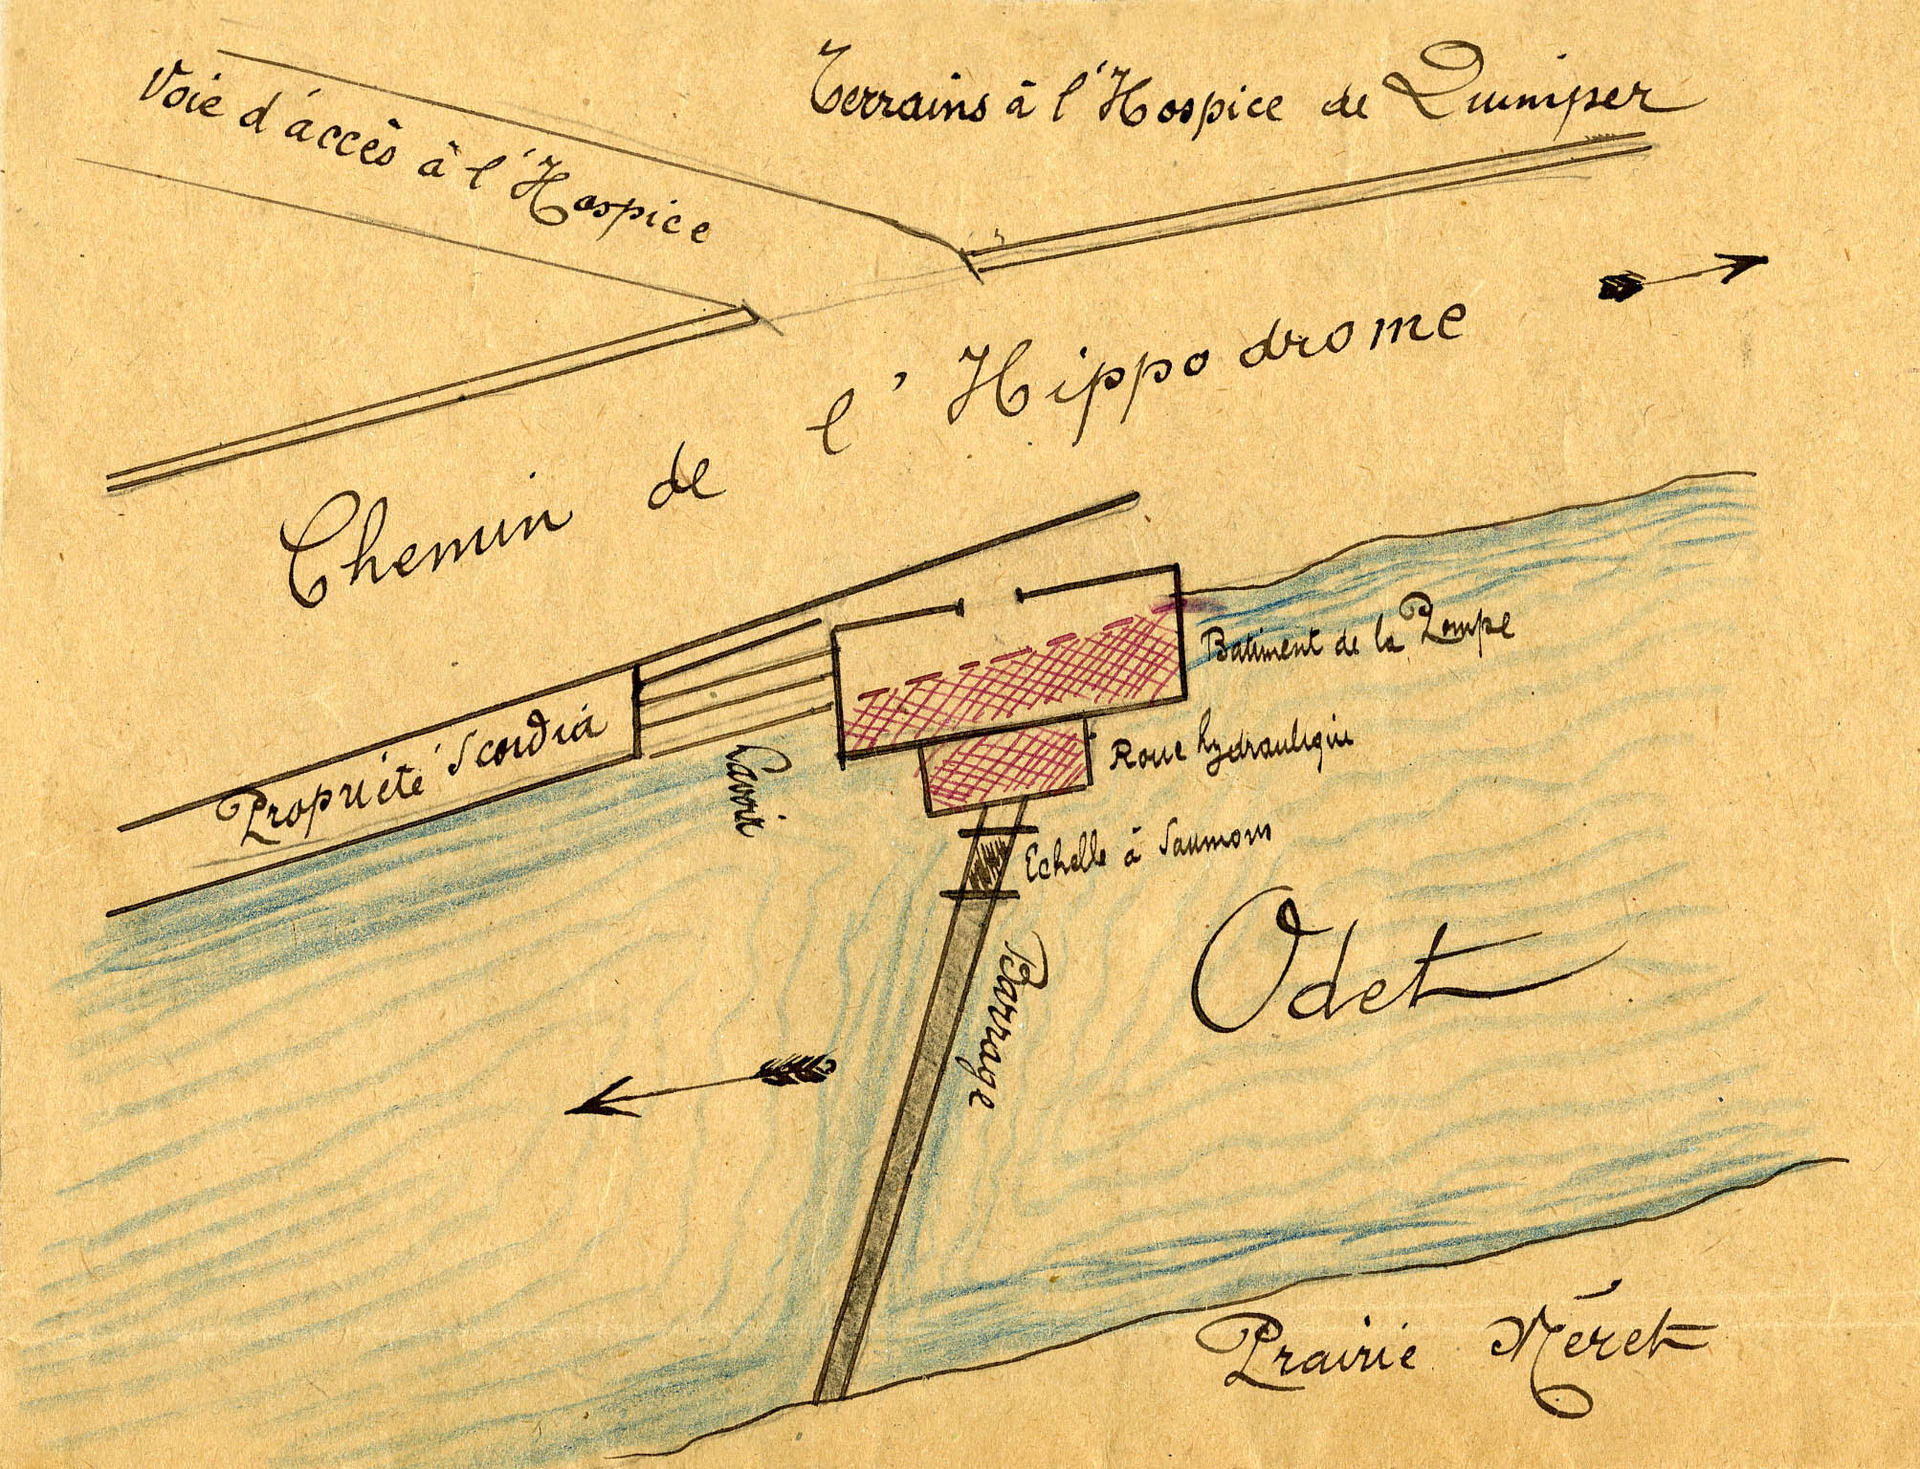 Voie d'accès à l'Hospice
Terrains à l'Hospice de Quimper
Chemin de l'Hippodrome
Propriété Scordia
Lavoir
Batiment de la Pompe
Roue hydraulique
Echelle à Saumons
Barrage
Odet
Prairie Méret